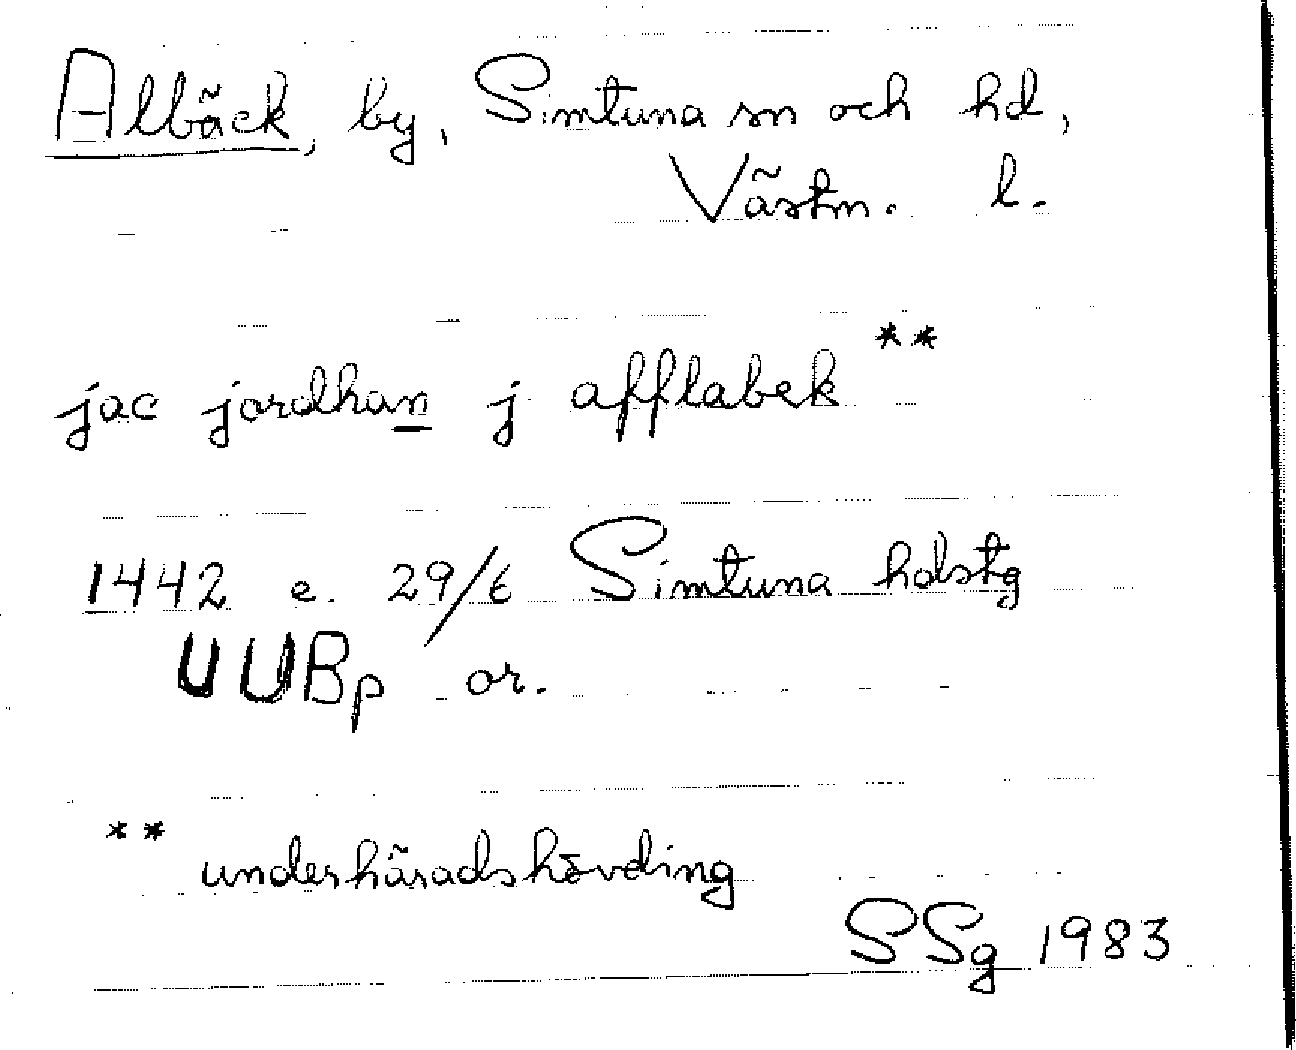 Albäck, by, Simtuna sn och hd,
Västm. l.
jac jordhan j afflabek **
1442 e. 29/6 Simtuna hdstg
UUBp or.
** underhäradshövding
SSg 1983